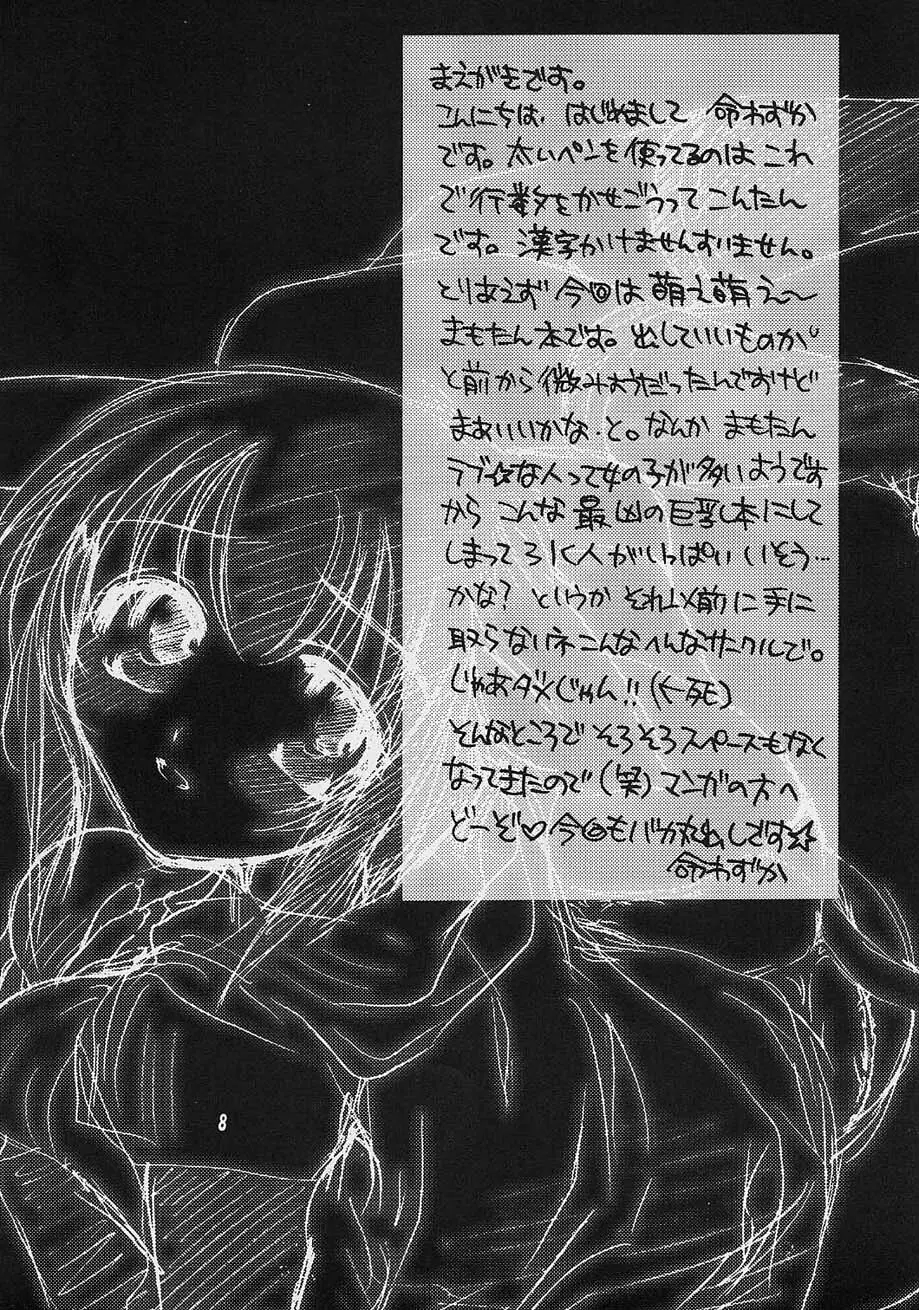 まえがきです。
こんにちは、はじめまして 命わずか
です。太いペンを使ってるのは これ
で行数をかせごうって こんたん
です。漢字かけませんすいません。
とりあえず 今回は 萌え萌え〜
まもたん本です。出していいものか
と前から微みょうだったんですけど
まぁいいかな・と。なんか まもたん
ラブ☆な人って女の子が多いようです
から こんな 最凶の巨乳本にして
しまって ひく人がいっぱい いそう…
かな? というか それ以前に手に
取らないネこんなへんなサークルで。
じゃあダメじゃん!!(←死)
そんなところで そろそろスペースもなく
なってきたので (笑) マンガの方へ
どーぞ♡ 今回もバカ丸出しです☆
命わずか
8